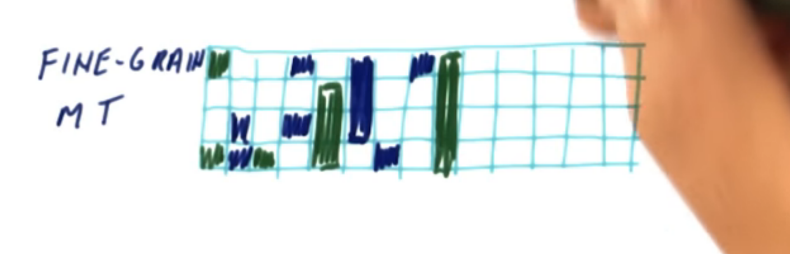 FINE-GRAIN
MT